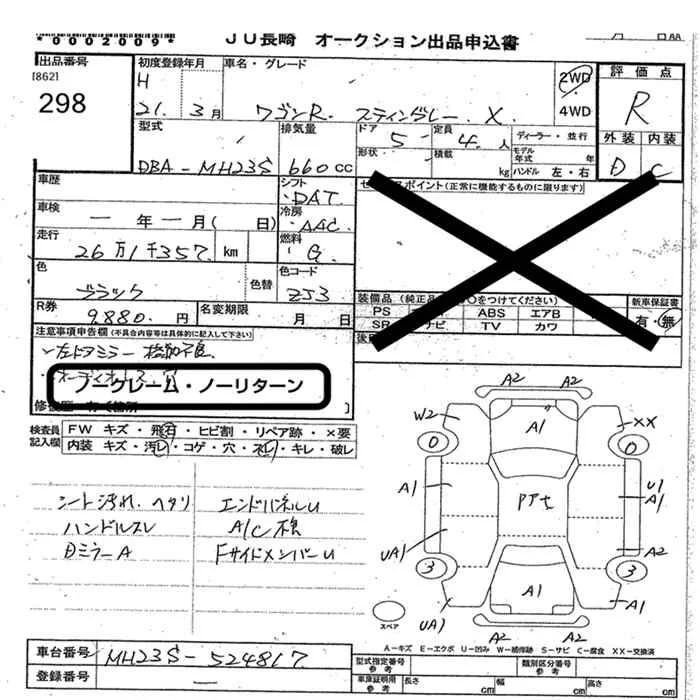 *0002009*
JU長崎 オークション出品申込書
出品番号
[862]
298
初度登録年月
H
21. 3月
車名・グレード
ワゴンR. スティングレー. X.
2WD
4WD
評価点
R
外装 内装
D C
型式
DBA-MH23S
排気量
660cc
ドア 5
形状
定員 4. 人
積載 kg
ディーラー・並行
モデル年式 年
ハンドル 左・右
車歴
シフト
DAT
車検
一 年 一 月( 日)
冷房
AAC.
走行
26万1千357. km
燃料
G.
色
ブラック
色替
色コード
ZJ3
R券
9880. 円
名変期限
月 日
ポイント(正常に機能するものに限ります)
装備品(純正品
をつけてください)
新車保証書
有・無
PS ABS エアB
SR ナビ TV カワ
注意事項申告欄(不具合内容等は具体的に記入して下さい)
左ドアミラー
ノークレーム・ノーリターン
検査員
記入欄
FW キズ・飛石・ヒビ割・リペア跡・×要
内装 キズ・汚レ・コゲ・穴・スレ・キレ・破レ
シート汚れ.ヘタリ
ハンドルスレ
Bミラー A
エンドパネルU
A/C不良
FサイドメンバーU
A2 A2
W2 A1 XX
0 0
A1 U1
A1
UA1 A2
3 3
UA1 A1 A1
A2 A2
スペア
A-キズ E-エクボ U-凹み W-補修跡 S-サビ C-腐食 XX-交換済
車台番号
MH23S-524817
登録番号
型式指定番号
参考
類別区分番号
参考
車庫証明用
参考
長さ cm 幅 cm 高さ cm